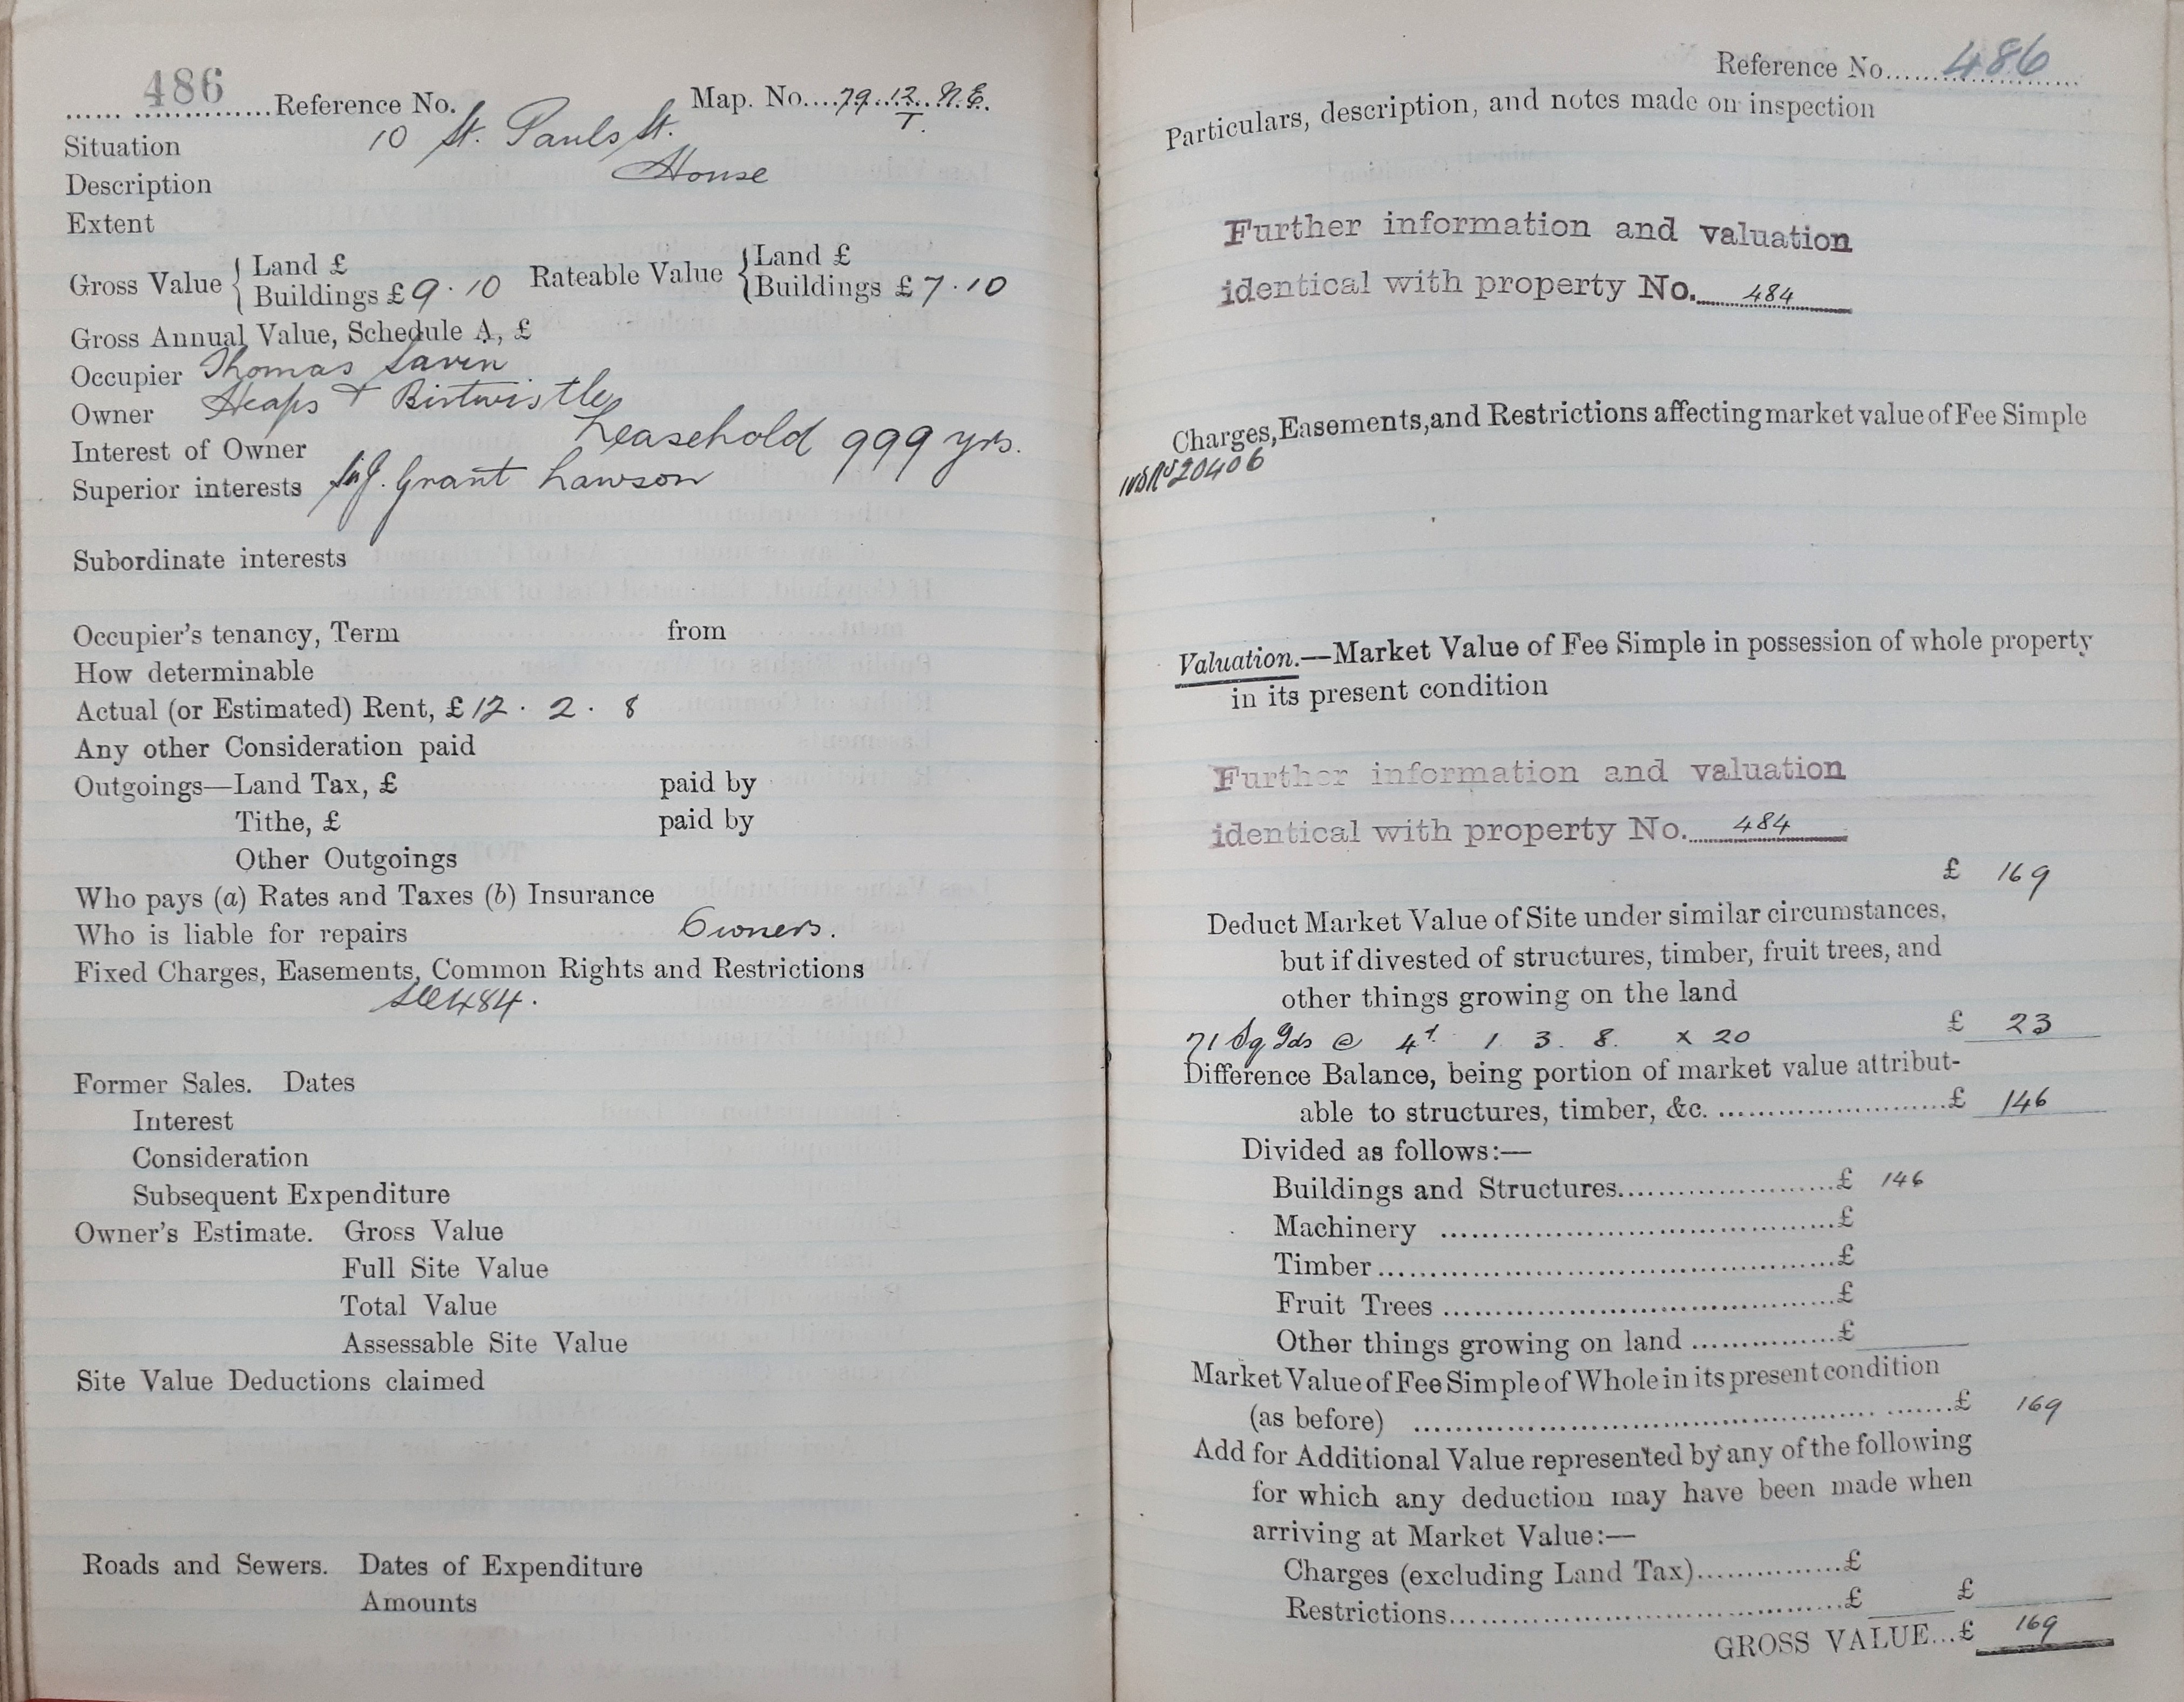 486
Reference No. Map. No. 79. 12. N.E.
T.
Situation 10 St. Pauls St.
Description House
Extent
Gross Value { Land £ Rateable Value { Land £
Buildings £ 9 . 10 Buildings £ 7 . 10
Gross Annual Value, Schedule A, £
Occupier Thomas Lavin
Owner Heaps & Birtwistle
Interest of Owner Leasehold 999 yrs.
Superior interests Sir J. Grant Lawson
Subordinate interests
Occupier's tenancy, Term from
How determinable
Actual (or Estimated) Rent, £ 12 . 2 . 8
Any other Consideration paid
Outgoings—Land Tax, £ paid by
Tithe, £ paid by
Other Outgoings
Who pays (a) Rates and Taxes (b) Insurance
Who is liable for repairs Owners.
Fixed Charges, Easements, Common Rights and Restrictions
See 484.
Former Sales. Dates
Interest
Consideration
Subsequent Expenditure
Owner's Estimate. Gross Value
Full Site Value
Total Value
Assessable Site Value
Site Value Deductions claimed
Roads and Sewers. Dates of Expenditure
Amounts
Reference No. 486
Particulars, description, and notes made on inspection
Further information and valuation
identical with property No. 484
Charges, Easements, and Restrictions affecting market value of Fee Simple
20406
Valuation.—Market Value of Fee Simple in possession of whole property
in its present condition
Further information and valuation
identical with property No. 484
£ 169
Deduct Market Value of Site under similar circumstances,
but if divested of structures, timber, fruit trees, and
other things growing on the land
71 Sq Yds @ 4d. 1. 3. 8. x 20 £ 23
Difference Balance, being portion of market value attribut-
able to structures, timber, &c. £ 146
Divided as follows:—
Buildings and Structures £ 146
Machinery £
Timber £
Fruit Trees £
Other things growing on land £
Market Value of Fee Simple of Whole in its present condition
(as before) £ 169
Add for Additional Value represented by any of the following
for which any deduction may have been made when
arriving at Market Value:—
Charges (excluding Land Tax) £
Restrictions £ £
GROSS VALUE...£ 169